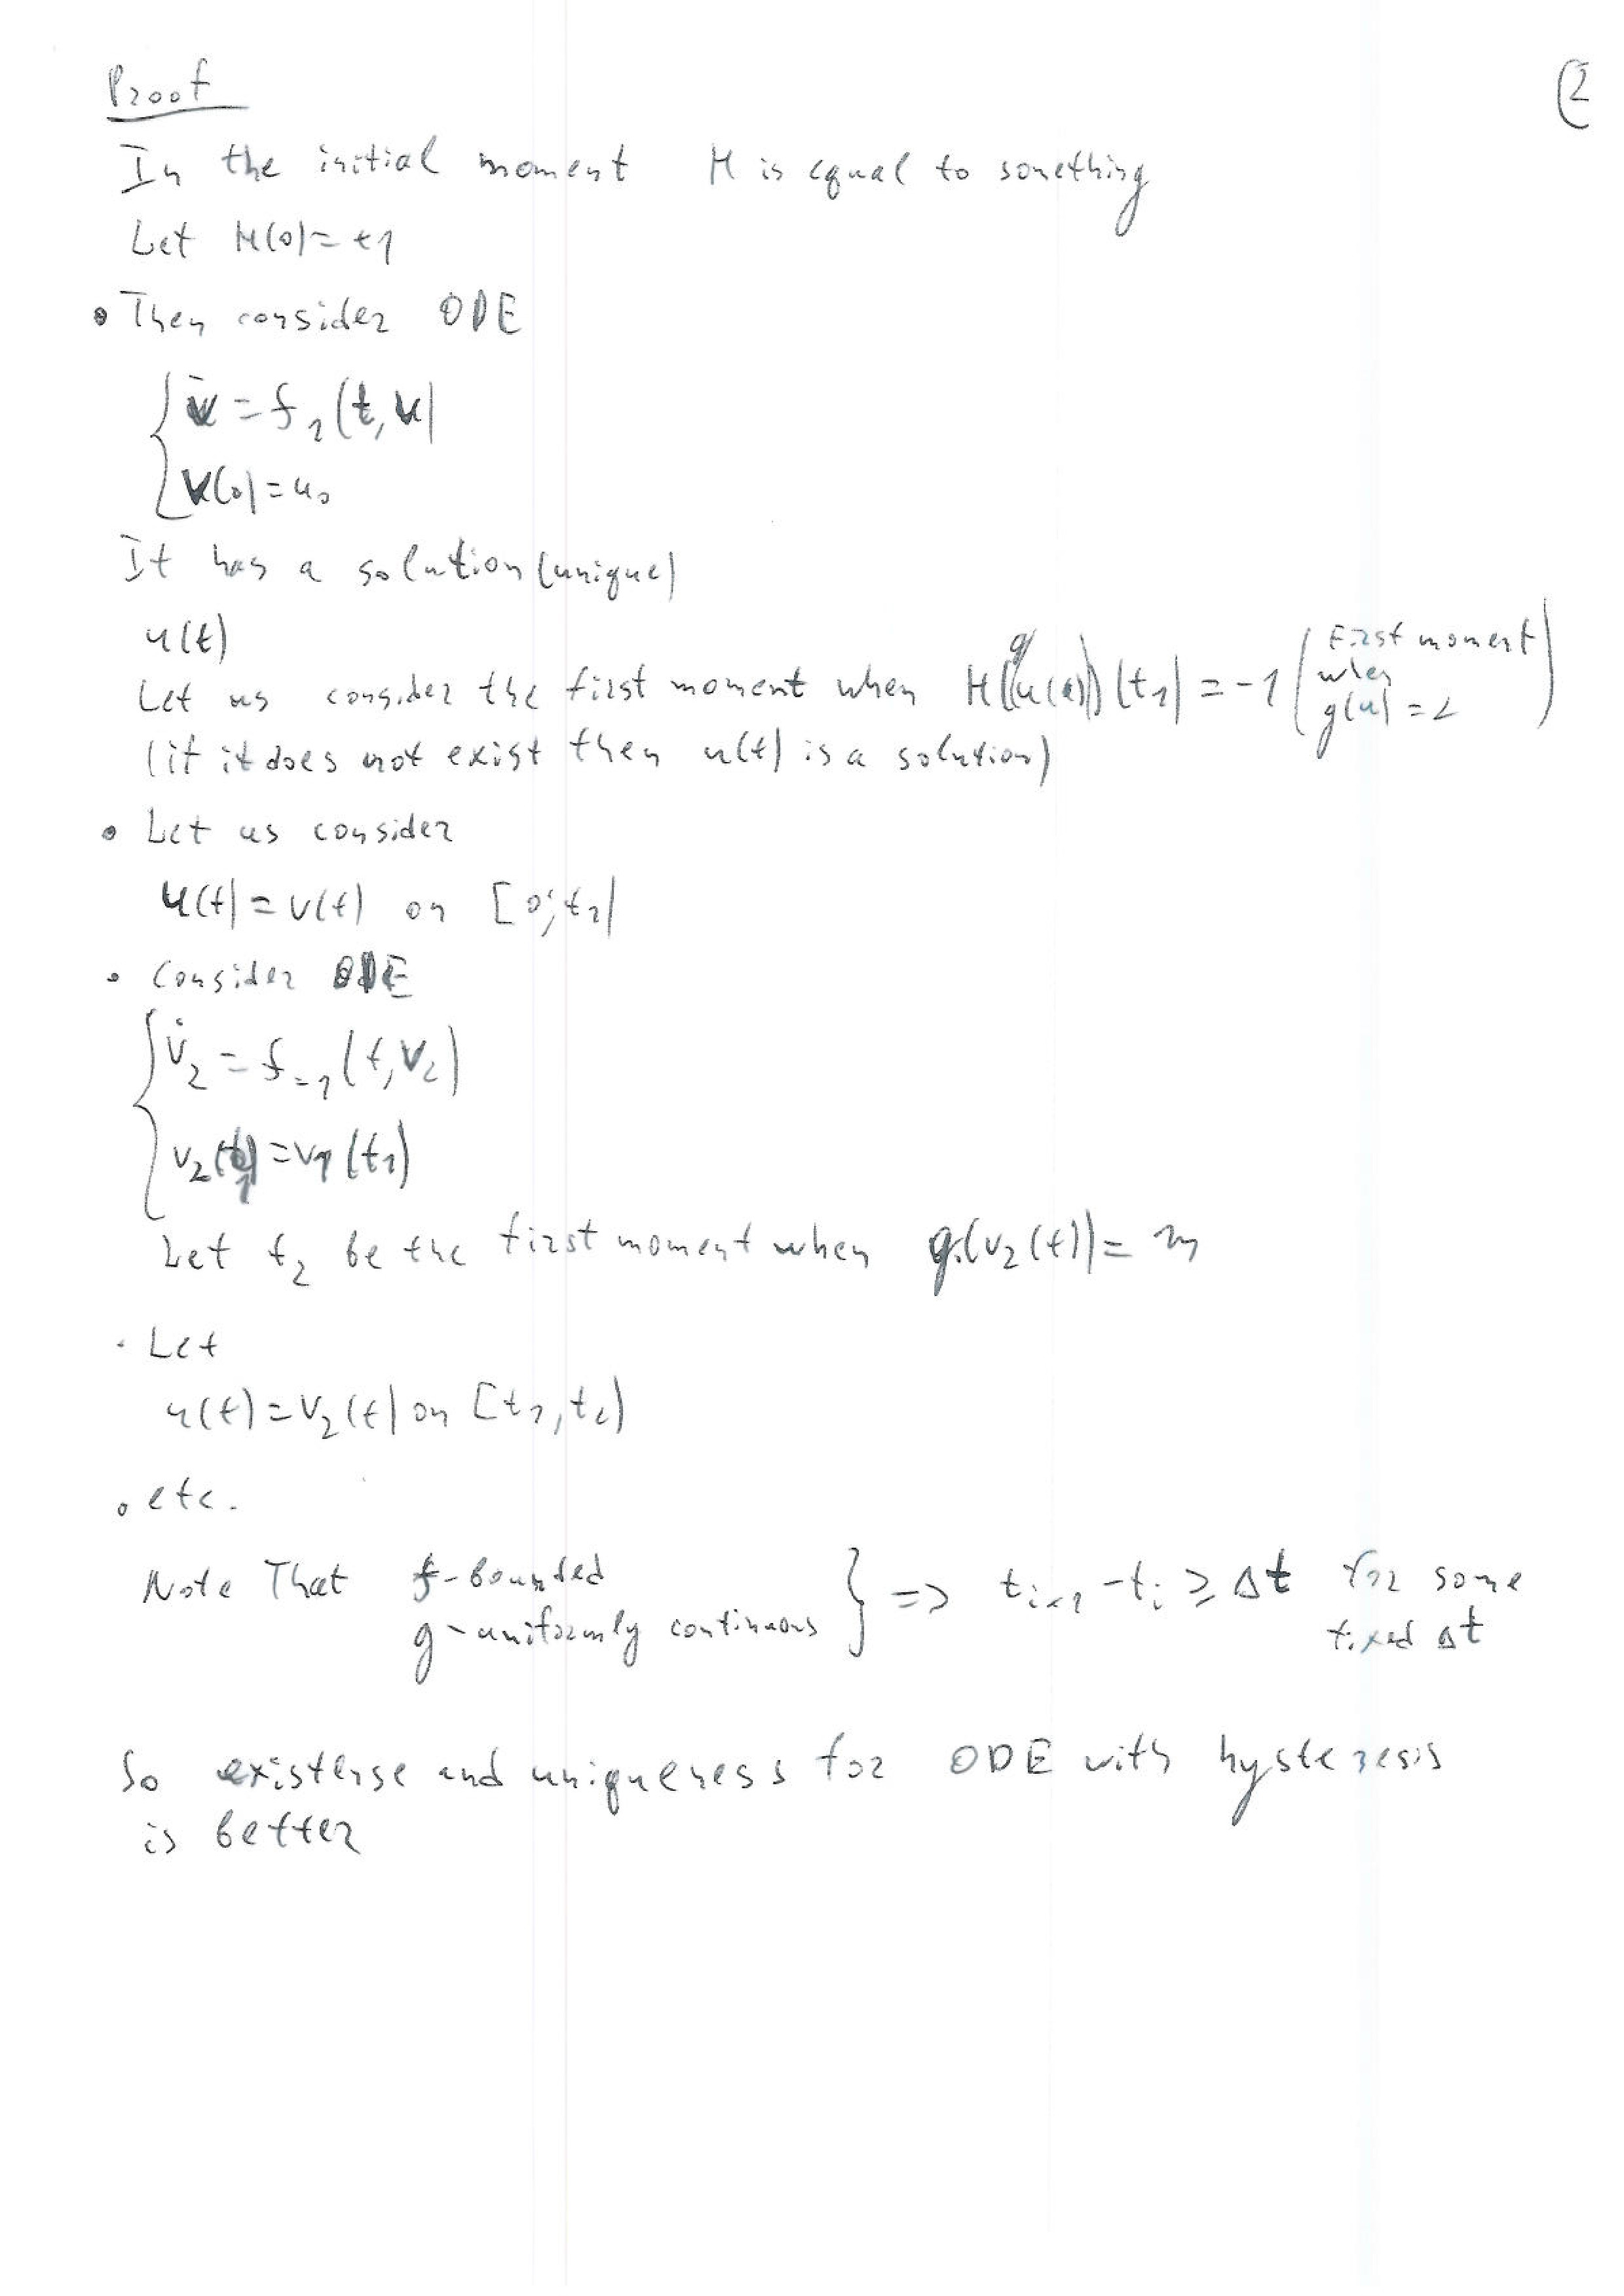 Proof
(2
In the initial moment H is equal to something
Let H(0)=+1
• Then consider ODE
{ v̇ = f₁(t,v)
v(0)=u₀
It has a solution (unique)
u(t)
Let us consider the first moment when H(g(u(t)))(t₁) = -1 (First moment when g(u) = L)
(if it does not exist then u(t) is a solution)
• Let us consider
u(t) = v(t) on [0; t₁)
• Consider ODE
{ v̇₂ = f₋₁(t,v₂)
v₂(t₁) = v₁(t₁)
Let t₂ be the first moment when g(v₂(t)) = m
• Let
u(t) = v₂(t) on [t₁, t₂)
• etc.
Note That f-bounded
g-uniformly continuous } => tᵢ₊₁ - tᵢ ≥ Δt for some fixed Δt
So existense and uniqueness for ODE with hysteresis
is better